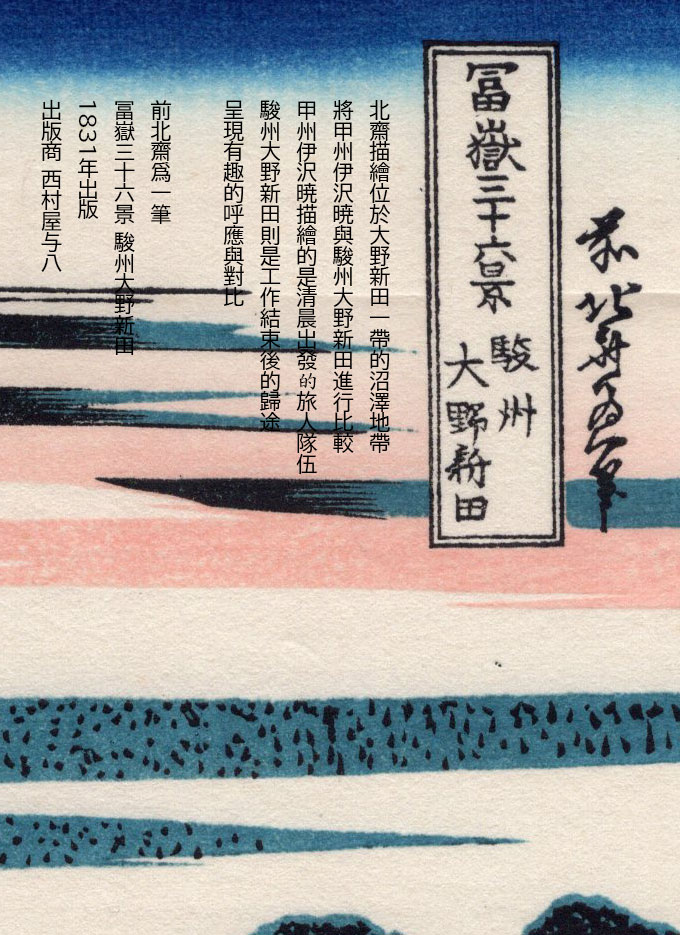 前北斎為一筆
冨嶽三十六景 駿州
大野新田
北齋描繪位於大野新田一帶的沼澤地帶
將甲州伊沢暁與駿州大野新田進行比較
甲州伊沢暁描繪的是清晨出發的旅人隊伍
駿州大野新田則是工作結束後的歸途
呈現有趣的呼應與對比
前北齋爲一筆
冨嶽三十六景 駿州大野新田
1831年出版
出版商 西村屋与八